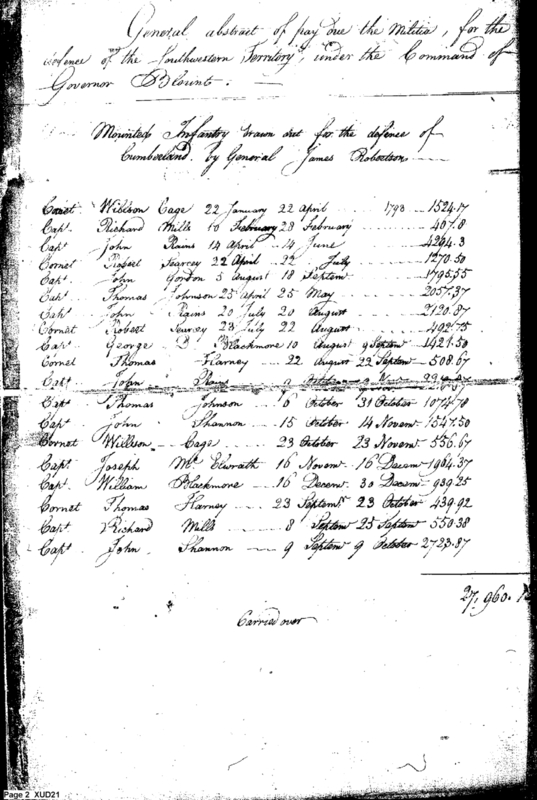 General abstract of pay due the Militia, for the
defence of the Southwestern Territory, under the Command of
Governor Blount. —
Mounted Infantry drawn out for the defence of
Cumberland by General James Robertson
Cornet William Cage 22 January 22 April 1793 1524.17
Capt Richard Mills 10 February 28 February 407.8
Capt John Rains 14 April 14 June 4294.3
Cornet Robert Searcey 22 April 22 July 1270.50
Capt John Gordon 5 August 18 Septem 1795.55
Capt Thomas Johnson 25 April 25 May 2057.37
Capt John Rains 20 July 20 August 2120.87
Cornet Robert Searcey 23 July 22 August 492.75
Capt George D. Blackmore 10 August 9 Septem 1421.50
Cornet Thomas Harney 22 August 22 Septem 508.67
Capt John Rains 9
Capt Thomas Johnson 6 October 31 October 1074.78
Capt John Shannon 15 October 14 Novem 1547.50
Cornet William Cage 23 October 23 Novem 556.67
Capt Joseph McElwrath 16 Novem 16 Decem 1964.37
Capt William Blackmore 16 Decem 30 Decem 939.25
Cornet Thomas Harney 23 Septemr 23 October 439.92
Capt Richard Mills 8 Septem 25 Septem 550.38
Capt John Shannon 9 Septem 9 October 2723.87
27,960.
Carried over
Page 2 XUD21